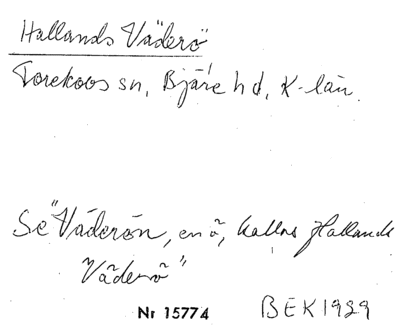 Hallands Väderö
Torekovs sn, Bjäre hd, K-län.
Se "Väderön, en ö, kallas Hallands
Väderö"
Nr 15774 BEK 1929